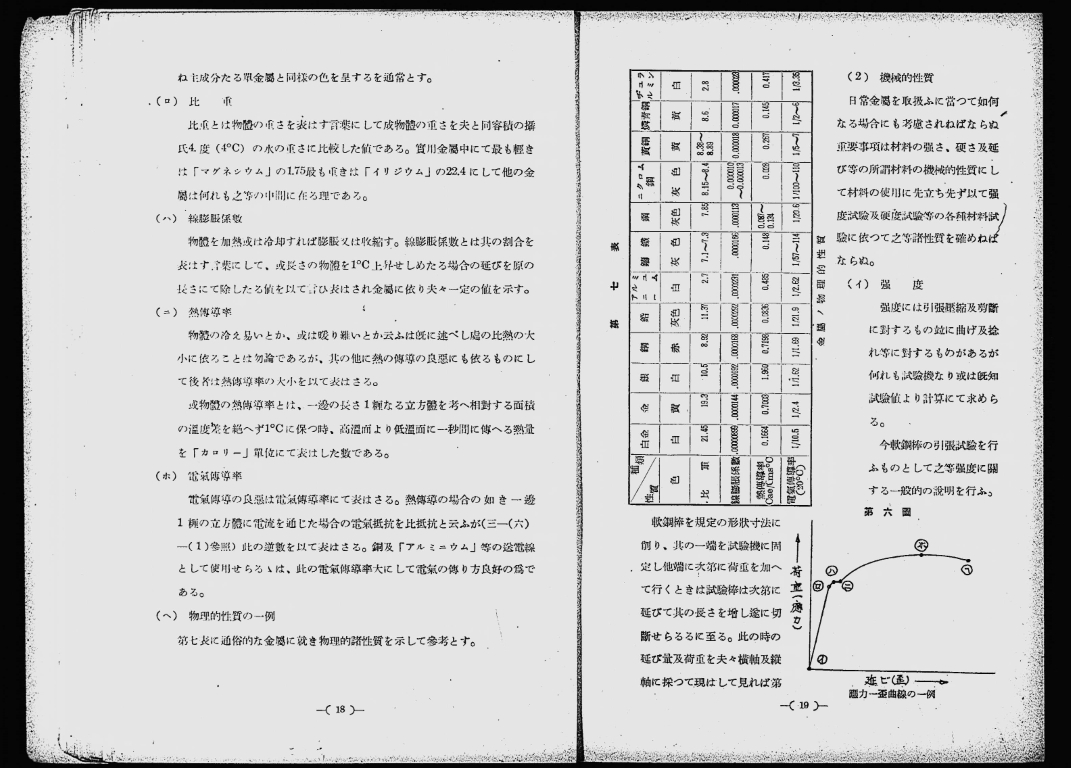 ね主成分たる單金屬と同様の色を呈するを通常とす。
(ロ) 比　　重
比重とは物體の重さを表はす言葉にして成物體の重さを夫と同容積の攝
氏4.度 (4°C) の水の重さに比較した値である。實用金屬中にて最も輕き
は「マグネシウム」の1.75最も重きは「イリジウム」の22.4 にして他の金
屬は何れも之等の中間に在る理である。
(ハ) 線膨脹係數
物體を加熱或は冷却すれば膨脹又は收縮す。線膨脹係數とは其の割合を
表はす言葉にして、或長さの物體を1°C上昇せしめたる場合の延びを原の
長さにて除したる値を以て言ひ表はされ金屬に依り夫々一定の値を示す。
(ニ) 熱傳導率
物體の冷え易いとか、或は暖り難いとか云ふは既に述べし處の比熱の大
小に依ることは勿論であるが、其の他に熱の傳導の良惡にも依るものにし
て後者は熱傳導率の大小を以て表はさる。
或物體の熱傳導率とは、一邊の長さ1糎なる立方體を考へ相對する面積
の溫度差を絕へず1°Cに保つ時、高溫面より低溫面に一秒間に傳へる熱量
を「カロリー」單位にて表はした數である。
(ホ) 電氣傳導率
電氣傳導の良惡は電氣傳導率にて表はさる。熱傳導の場合の如き一邊
1 糎の立方體に電流を通じた場合の電氣抵抗を比抵抗と云ふが(三—(六)
—(1)參照) 此の逆數を以て表はさる。銅及「アルミニウム」等の送電線
として使用せらるゝは、此の電氣傳導率大にして電氣の傳り方良好の爲で
ある。
(ヘ) 物理的性質の一例
第七表に通俗的な金屬に就き物理的諸性質を示して參考とす。
—( 18 )—
(2) 機械的性質
日常金屬を取扱ふに當つて如何
なる場合にも考慮されねばならぬ
重要事項は材料の強さ、硬さ及延
び等の所謂材料の機械的性質にし
て材料の使用に先立ち先ず以て强
度試驗及硬度試驗等の各種材料試
驗に依つて之等諸性質を確めねば
ならぬ。
(イ) 强　　度
強度には引張壓縮及剪斷
に對するもの竝に曲げ及捻
れ等に對するものがあるが
何れも試驗機なり或は既知
試驗値より計算にて求めら
る。
今軟鋼棒の引張試驗を行
ふものとして之等强度に關
する一般的說明を行ふ。
第七表　金屬ノ物理的性質
種類 性質 白金 金 銀 銅 鉛 アルミニューム 錫 鋼 ニクロム鋼 黃銅 燐靑銅 ヂュラルミン
色 白 黃 白 赤 灰色 白 灰色 灰色 灰色 黃 黃 白
比重 21.45 19.3 10.5 8.92 11.37 2.7 7.1〜7.3 7.85 8.15〜8.4 8.28〜8.89 8.6 2.8
線膨脹係數 .0000899 .0000144 .0000192 .0000168 .0000292 .0000231 .0000166 .0000113 0.000010〜0.000013 0.000018 0.000017 .000023
熱傳導率 Cae/Cms°C 0.1664 0.7003 1.960 0.7198 0.0836 0.485 0.148 0.087〜0.124 0.028 0.267 0.165 0.417
電氣傳導率 (20°C) 1/10.5 1/2.4 1/1.62 1/1.69 1/21.9 1/2.62 1/57〜114 1/20.6 1/100〜110 1/5〜7 1/2〜6 1/3.35
軟鋼棒を規定の形狀寸法に
削り、其の一端を試驗機に固
定し他端に次第に荷重を加へ
て行くときは試驗棒は次第に
延びて其の長さを增し遂に切
斷せらるるに至る。此の時の
延び量及荷重を夫々橫軸及縱
軸に採つて現はして見れば第
第六圖
荷重(應力)
イ
ロ
ハ
ニ
ホ
ヘ
延ビ(歪)
應力—歪曲線の一例
—( 19 )—